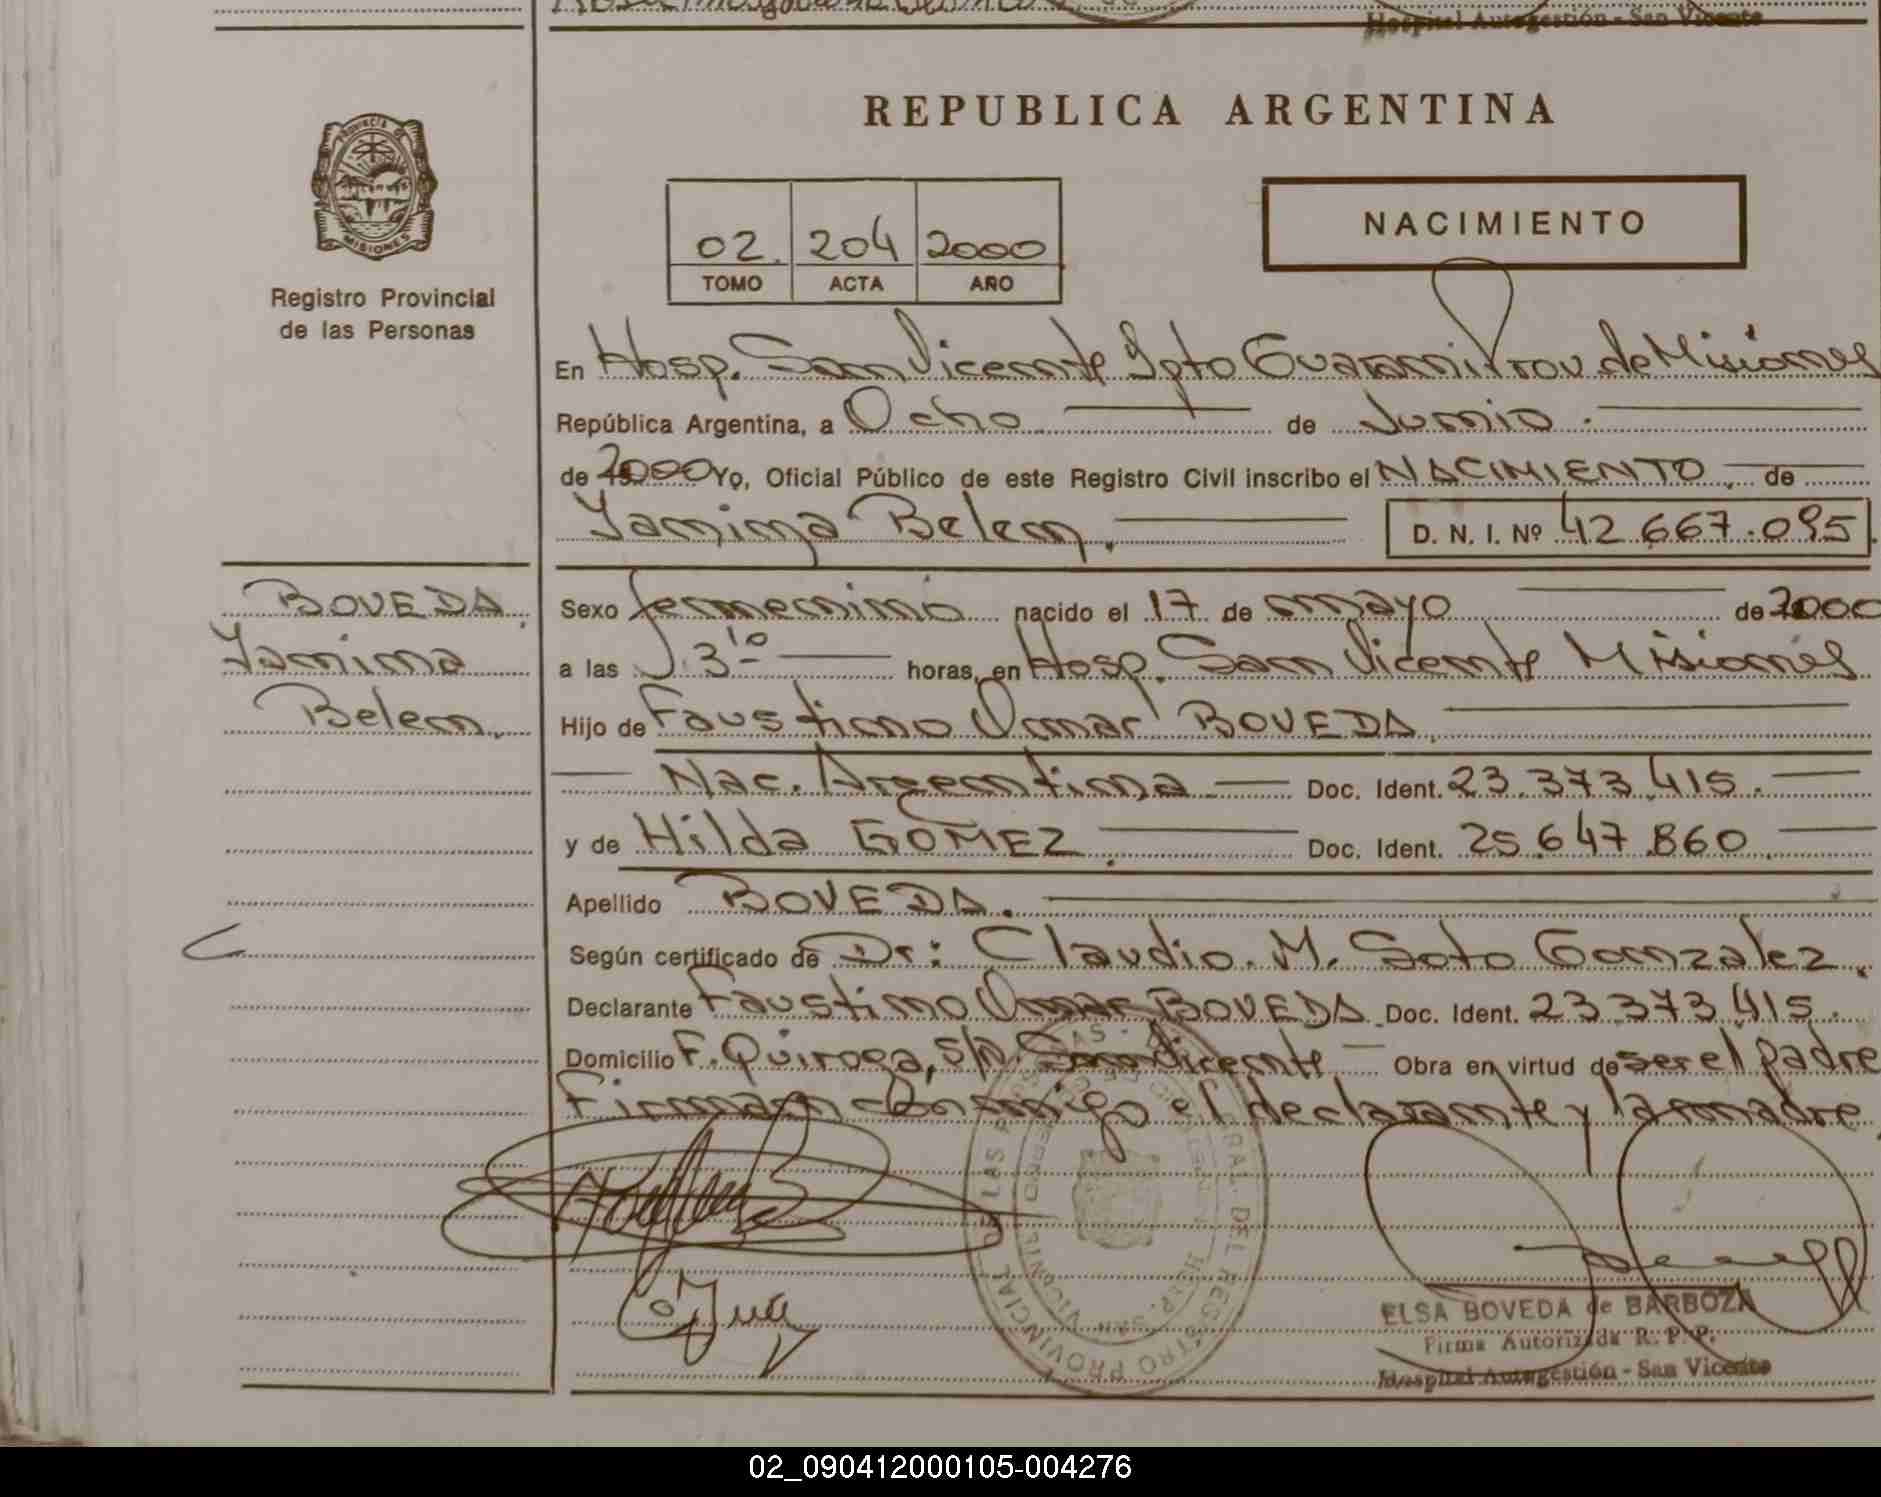 Hospital Autogestión - San Vicente
REPUBLICA ARGENTINA
PROVINCIA DE
MISIONES
Registro Provincial
de las Personas
02. 204 2000
TOMO ACTA AÑO
NACIMIENTO
En Hosp. San Vicente Dpto Guarani Prov de Misiones
República Argentina, a Ocho de Junio.
de 2000 Yo, Oficial Público de este Registro Civil inscribo el NACIMIENTO de
Yamima Belem. D. N. I. Nº 42.667.095
BOVEDA
Yamima
Belem.
Sexo femenino nacido el 17 de mayo de 2000
a las 3 10 horas, en Hosp. San Vicente Misiones
Hijo de Faustino Omar BOVEDA.
Nac. Argentina Doc. Ident. 23.373.415.
y de Hilda GOMEZ. Doc. Ident. 25.647.860
Apellido BOVEDA.
Según certificado de Dr: Claudio. M. Soto Gonzalez.
Declarante Faustino Omar BOVEDA Doc. Ident. 23.373.415.
Domicilio F. Quiroga, s/n. San Vicente Obra en virtud de ser el padre
Firman conmigo el declarante y la madre
REGISTRO PROVINCIAL DE LAS PERSONAS
HOSP. SAN VICENTE
ELSA BOVEDA de BARBOZA
Firma Autorizada R. P. P.
Hospital Autogestión - San Vicente
02_090412000105-004276